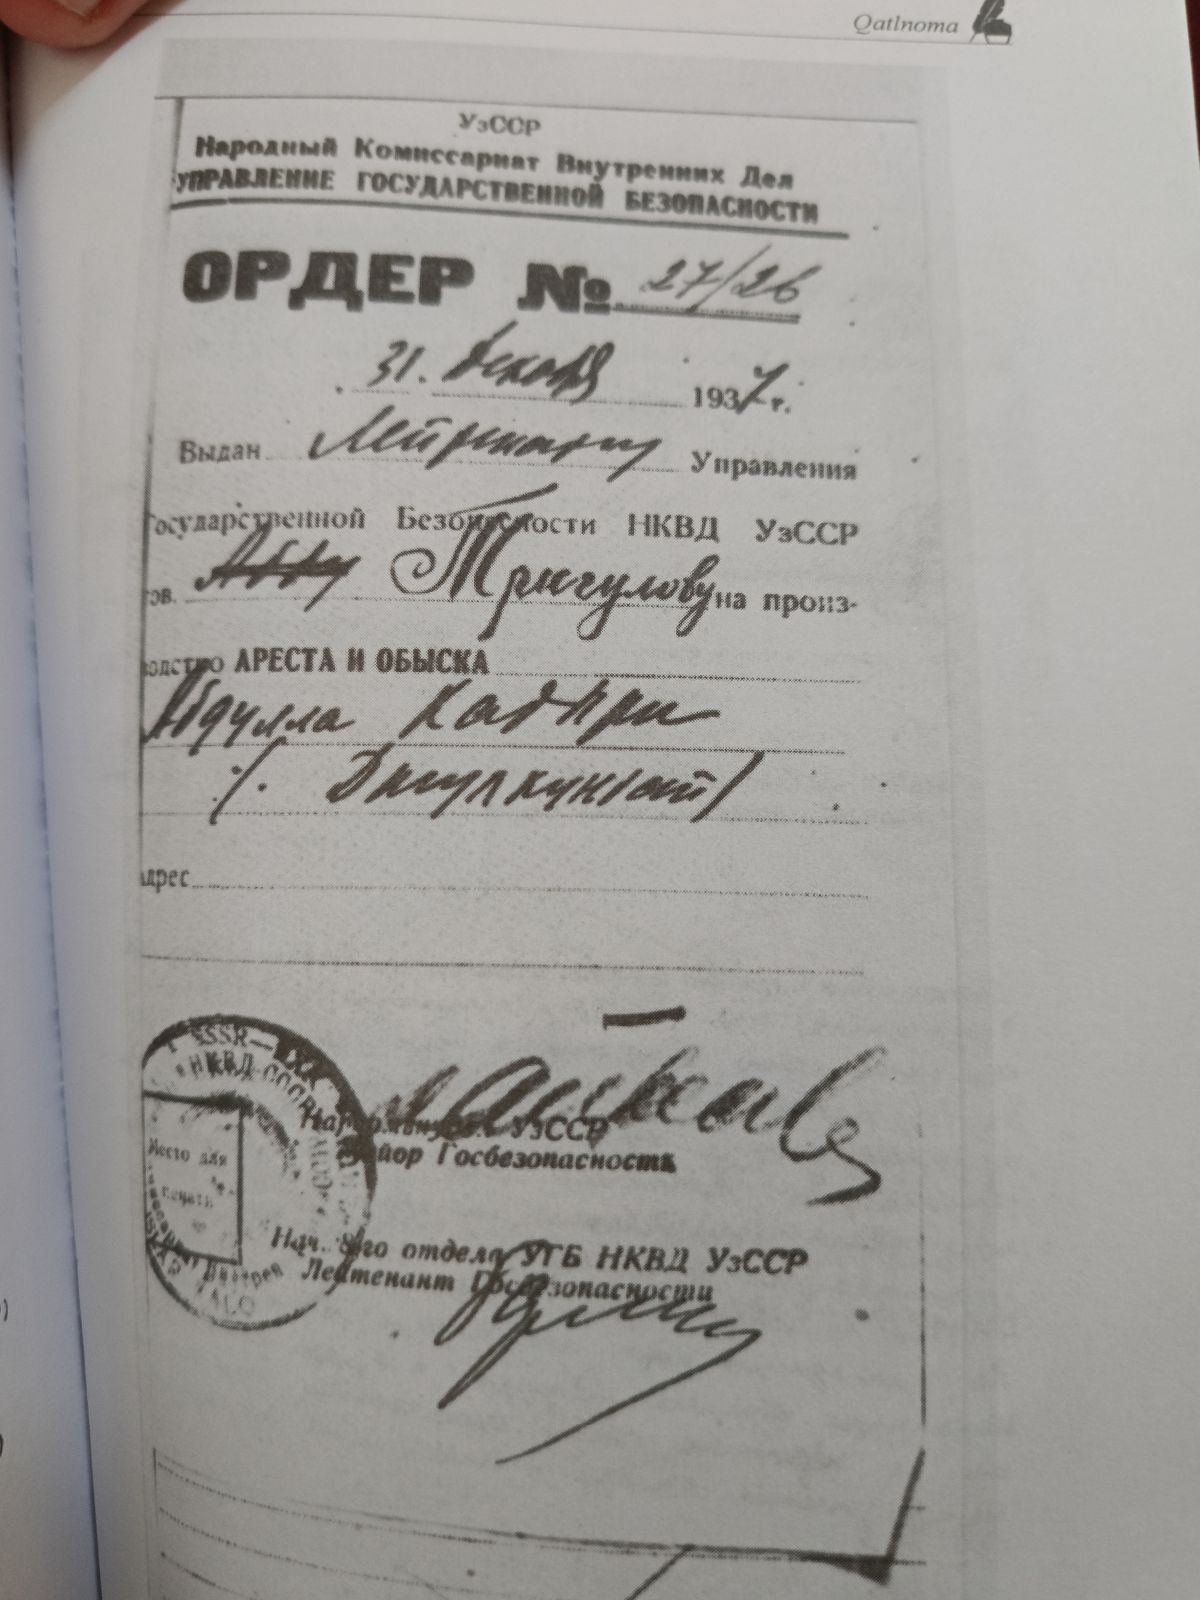 Qatlnoma
УзССР
Народный Комиссариат Внутренних Дел
УПРАВЛЕНИЕ ГОСУДАРСТВЕННОЙ БЕЗОПАСНОСТИ
ОРДЕР № 27/26
31. Декабря 1937 г.
Выдан Лейтенанту Управления
Государственной Безопасности НКВД УзССР
тов. Тригулову на произ-
водство АРЕСТА И ОБЫСКА
Абдулла Кадыри
(Джулкунбай)
Адрес
Наркомвнудел УзССР
Майор Госбезопасности
Нач. 8го отдела УГБ НКВД УзССР
Лейтенант Госбезопасности
Место для
печати
НКВД